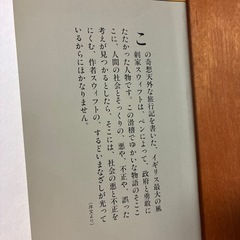 この奇想天外な旅行記を書いた、イギリス最大の風
刺家スウィフトは、ペンによって、政府と勇敢に
たたかった人物です。この滑稽でゆかいな物語のそここ
こに、人間の社会とそっくりの、悪や、不正や、誤った
考えが見つかるとしたら、そこには、社会の悪と不正を
にくむ、作者スウィフトの、するどいまなざしが光って
いるからにほかなりません。
(序文より)